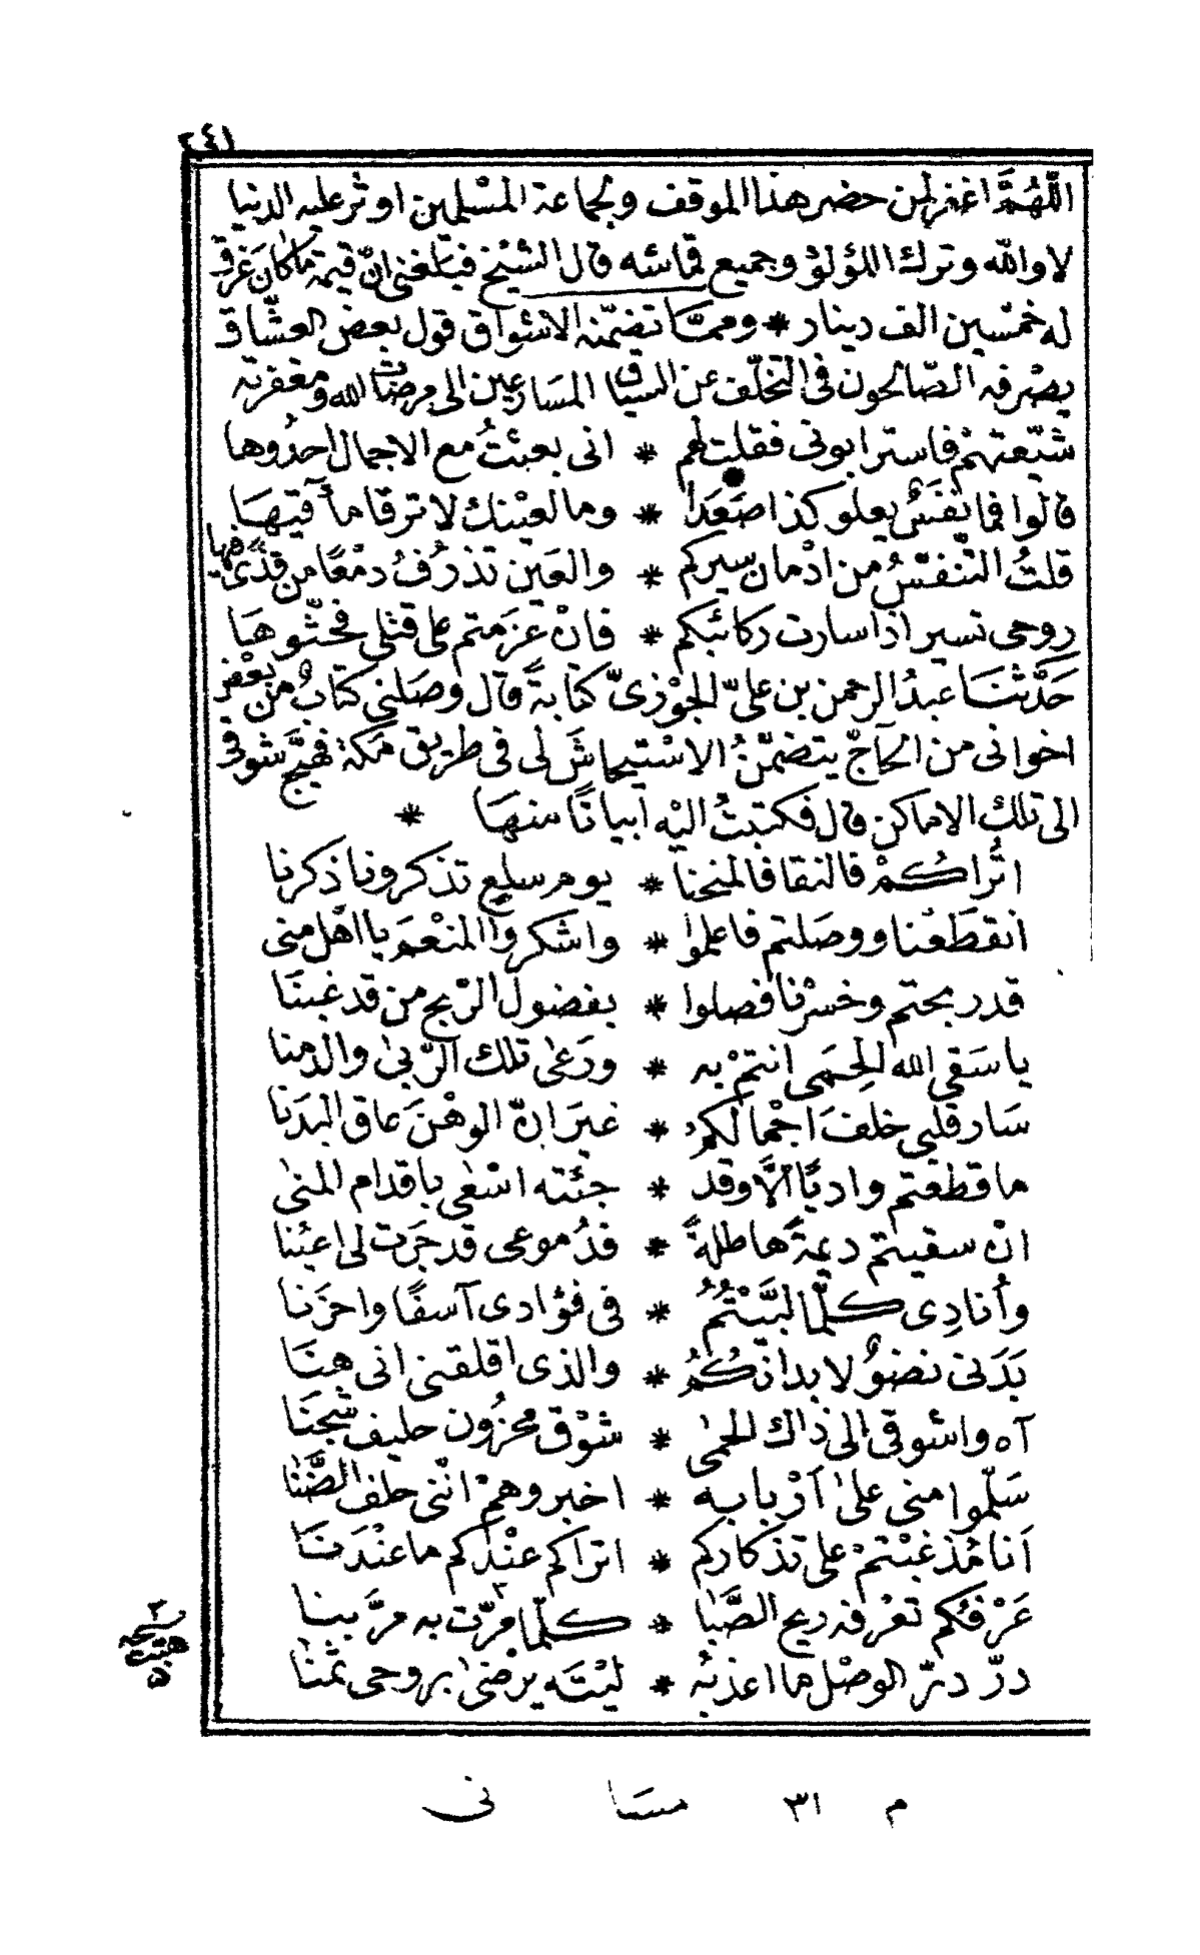 ٢٤١
اللّهُمَّ اغفر لمن حضر هذا الموقف ولجماعة المسْلمين اوثر عليه الدنيا
لا والله وترك اللؤلؤ وجميع قماشه قال الشيْخ فبَلغنى انّ قيمة ما كانَ غرق
له خمْسين الف دينار * وممّا تضمّنه الاشواق قول بعض العشّاق
يصْرفه الصّالحون فى التخلّف عن السباق المسَارعين الى مرضات الله ومغفرته
شيّعتهمْ فاسترابونى فقلت لهم * انى بعثتُ مع الاجمال احدُوها
قالوا فما نفَسٌ يعلو كذا صَعَدا * وما لعيْنك لا ترقا مآقيهَا
قلتُ التّنفّسُ من ادْمان سيركم * والعَين تذرُفُ دمْعًا من قذًى فيها
روحى تسير اذا سارت ركائبكم * فانْ عزَمتم على قتلى فحثّوهَا
حَدّثنَا عبدُ الرحمن بن علىّ الجوْزىّ كتابةً قال وصَلنى كتابٌ من بعْض
اخوانى من الحآجّ يتضمّنُ الاسْتيحاشَ لى فى طريق مَكة فهيَّج شوقى
الى تلك الاماكن قال فكتبتُ اليْه ابياتًا منهَا *
اتُراكُمْ فالنقا فالمنحنا * يوم سلع تذكرونا ذكرنا
انقطَعْنا ووصَلتم فاعلموا * واشكروا المنْعمَ يا اهْل منى
قد ربحتم وخسْرنا فصلوا * بفضول الرّبح من قد غبنَا
يا سَقى الله الحِمَى انتمْ به * ورَعى تلك الرّبى والدمنا
سَار قلبى خلفَ اجْمالكمُ * غيَر انّ الوهْنَ عاق البدَنا
ما قطعْتم واديًا الَّا وقد * جئته اسْعى باقدام المنى
انْ سقيتم ديمةً هاطلةً * فدُموعى قد جَرَت لى اعيُنا
وأنادِى كلّما لبَّيْتُمُ * فى فؤادى آسفًا واحزَنا
بَدَنى نضوٌ لابدانكُمُ * والذى اقلقنى انى هنَا
آه واشوقى الى ذاك الحمى * شوْق محزُون حليف شجنَا
سَلّموا منى على اَرْبابه * اخبروهمْ انّنى حلف الضَّنا
اَنا مُذ غبْتمْ على تذكاركم * اتراكم عنْدكم ما عنْدَنَا
عَرْفكم تعْرفه ريح الصَّبا * كلّما مرّت به مرَّ بنا
درّ درّ الوصْل ما اعذبهُ * ليْتَه يرْضى بروحى ثمنا
نسخه
هبّت
م ٣١ مسَا نى